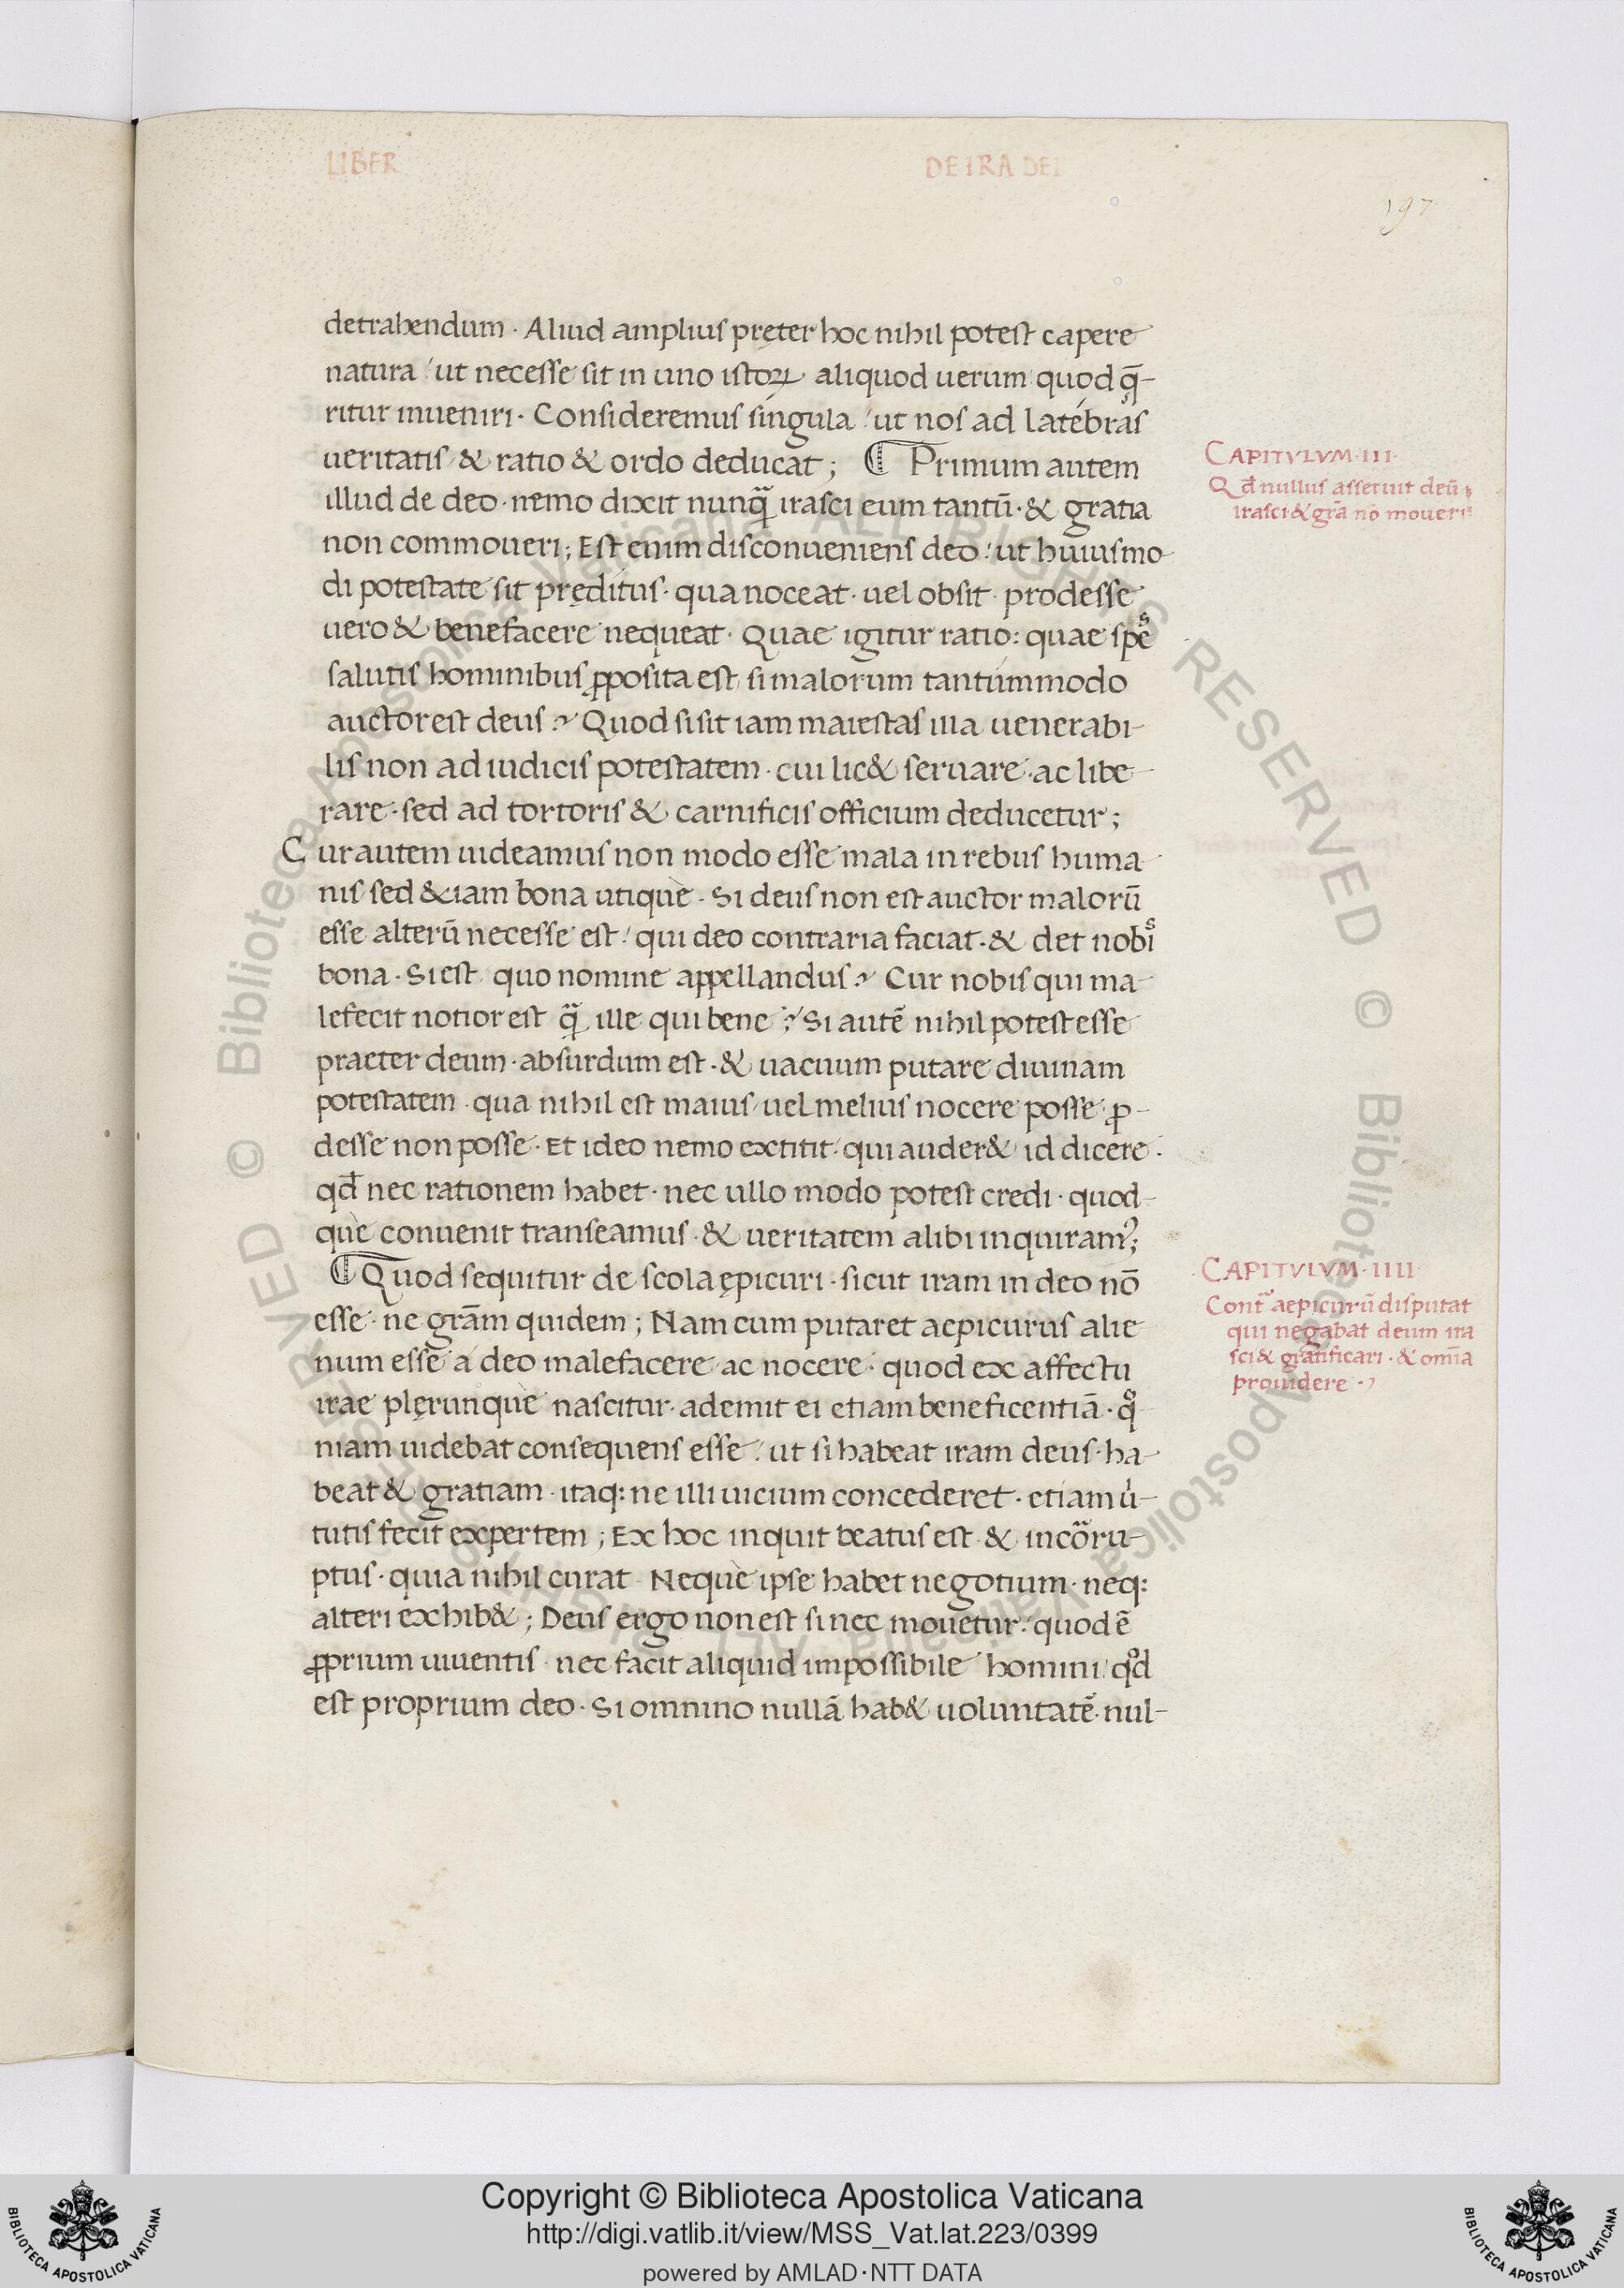 LIBER DE IRA DEI
197
detrahendum · Aliud amplius pręter hoc nihil potest capere
natura / ut necesse sit in uno istoꝝ aliquod uerum quod q̄-
ritur inueniri · Consideremus singula / ut nos ad latébras
ueritatis / & ratio & ordo deducat ; ¶ Primum autem
CAPITVLVM · III ·
illud de deo · nemo dixit nunqᷓ irasci eum tantū · & gratia
Qd̄ nullus asseruit deū
irasci & grā nō moueri
non commoueri ; Est enim disconueniens deo / ut huiusmo-
di potestate sit pręditus · qua noceat · uel obsit · prodesse
uero & benefacere nequeat · Quae igitur ratio : quae spes
salutis hominibus ꝓposita est / si malorum tantúmmodo
auctor est deus ? Quod si sit iam maiestas illa uenerabi-
lis non ad iudicis potestatem · cui lic& seruare · ac libe-
rare · sed ad tortoris & carnificis officium deducetur ;
Cur autem uideamus non modo esse mala in rebus huma-
nis sed &iam bona utique · Si deus non est auctor malorū
esse alterū necesse est / qui deo contraria faciat · & det nobis
bona · Si est quo nomine appellandus ? Cur nobis qui ma-
lefecit notior est qᷓ ille qui bene ? Si autē nihil potest esse
praeter deum · absurdum est · & uacuum putare diuinam
potestatem · qua nihil est maius / uel melius nocere posse / ꝓ-
desse non posse · Et ideo nemo extitit / qui auder& id dicere ·
qd̄ nec rationem habet · nec ullo modo potest credi · quod-
que conuenit transeamus · & ueritatem alibi inquiramꝰ ;
¶ Quod sequitur de scola ępicuri · sicut iram in deo nō
CAPITVLVM · IIII
esse · ne grām quidem ; Nam cum putaret aepicurus alie-
Contᷓ aepicurū disputat
qui negabat deum ira
sci & gratificari · & om̄ia
prouidere ·
num esse á deo malefacere / ac nocere · quod ex affectu
irae plęrunque nascitur · ademit ei etiam beneficentiā · qͦ-
niam uidebat consequens esse / ut si habeat iram deus · ha-
beat & gratiam · itaq: ne illi uicium concederet · etiam uͥ-
tutis fecit expertem ; Ex hoc inquit beatus est · & incōrru-
ptus · quia nihil curat · Neque ipse habet negotium · neq:
alteri exhib& ; Deus ergo non est si nec mouetur / quod ē
ꝓprium uiuentis · nec facit aliquid impossibile homini / qͦd
est proprium deo · Si omnino nullā hab& uoluntatē · nul-
© Biblioteca Apostolica Vaticana ALL RIGHTS RESERVED
© Biblioteca Apostolica Vaticana ALL RIGHTS RESERVED
Copyright © Biblioteca Apostolica Vaticana
http://digi.vatlib.it/view/MSS_Vat.lat.223/0399
powered by AMLAD·NTT DATA
BIBLIOTECA APOSTOLICA VATICANA
BIBLIOTECA APOSTOLICA VATICANA